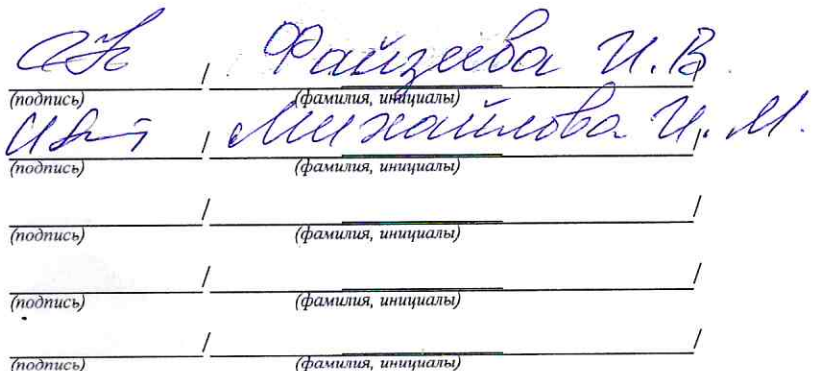 / Файзеева И.В. /
(подпись) (фамилия, инициалы)
/ Михайлова И.М. /
(подпись) (фамилия, инициалы)
/ /
(подпись) (фамилия, инициалы)
/ /
(подпись) (фамилия, инициалы)
/ /
(подпись) (фамилия, инициалы)